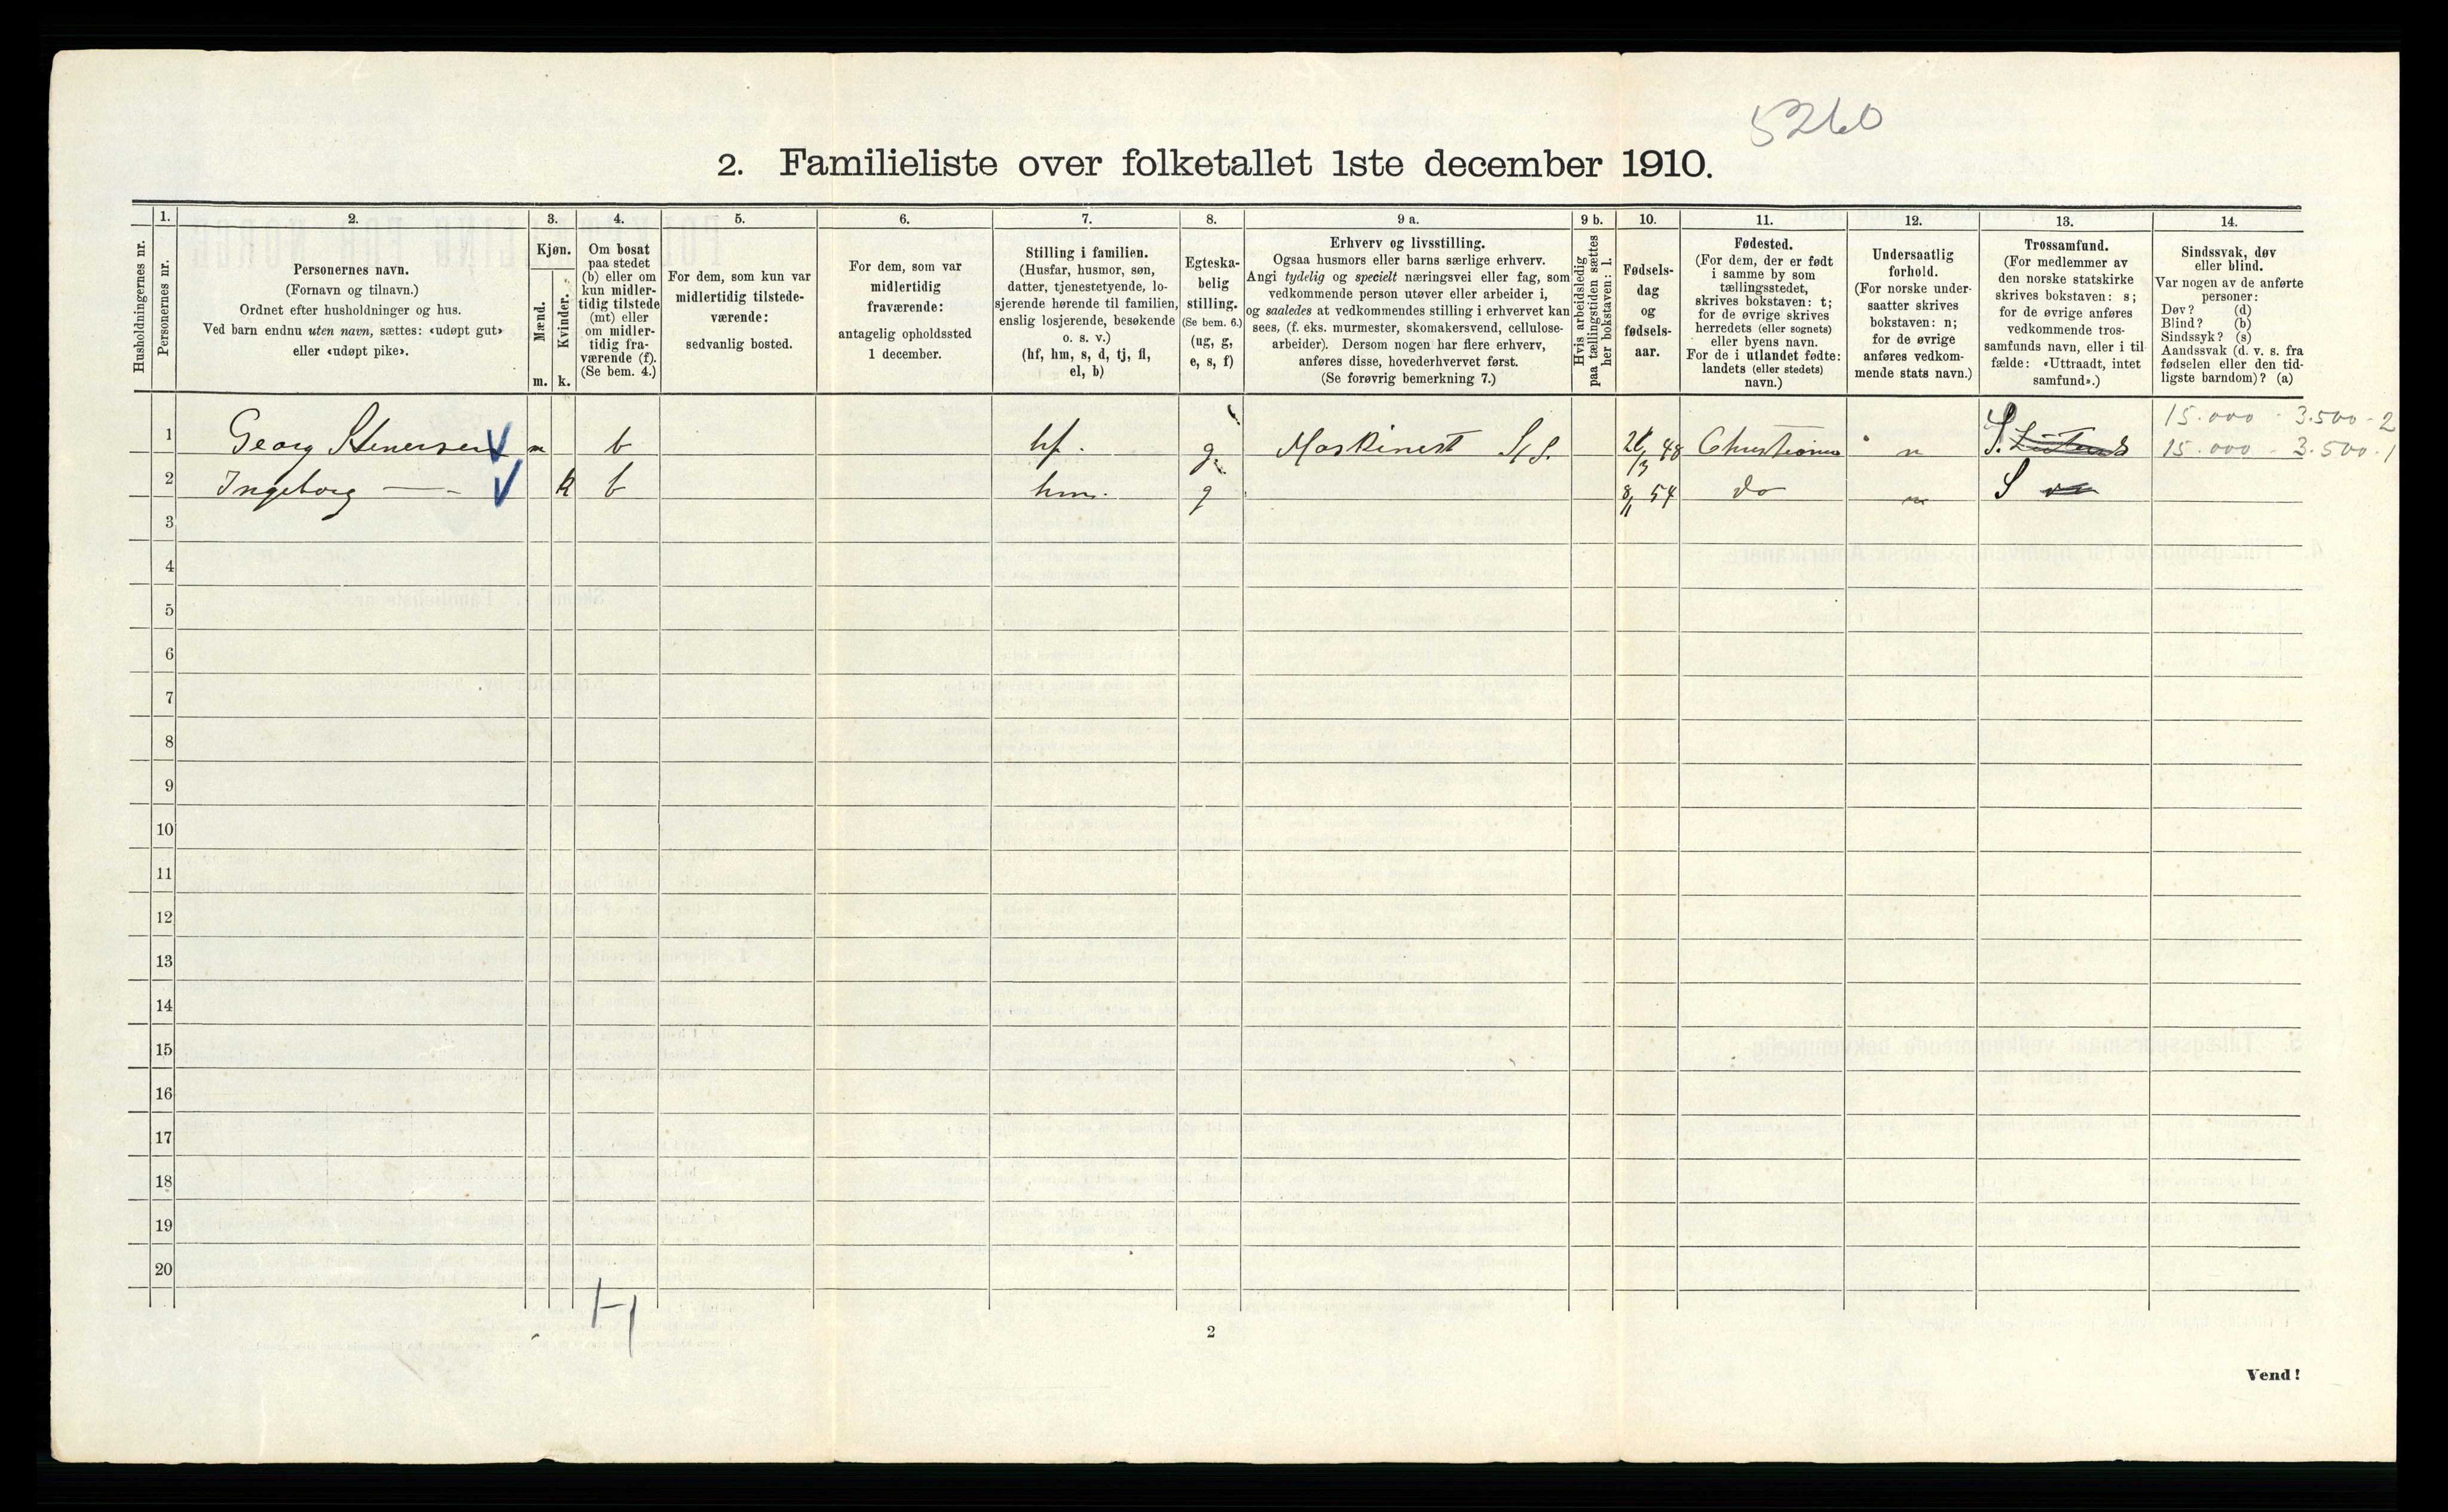 5260
2. Familieliste over folketallet 1ste december 1910.
Husholdningernes nr.
1.
Personernes nr.
2.
Personernes navn.
(Fornavn og tilnavn.)
Ordnet efter husholdninger og hus.
Ved barn endnu uten navn, sættes: «udøpt gut»
eller «udøpt pike».
3.
Kjøn.
Mænd.
m.
Kvinder.
k.
4.
Om bosat
paa stedet
(b) eller om
kun midler-
tidig tilstede
(mt) eller
om midler-
tidig fra-
værende (f).
(Se bem. 4.)
5.
For dem, som kun var
midlertidig tilstede-
værende:
sedvanlig bosted.
6.
For dem, som var
midlertidig
fraværende:
antagelig opholdssted
1 december.
7.
Stilling i familien.
(Husfar, husmor, søn,
datter, tjenestetyende, lo-
sjerende hørende til familien,
enslig losjerende, besøkende
o. s. v.)
(hf, hm, s, d, tj, fl,
el, b)
8.
Egteska-
belig
stilling.
(Se bem. 6.)
(ug, g,
e, s, f)
9 a.
Erhverv og livsstilling.
Ogsaa husmors eller barns særlige erhverv.
Angi tydelig og specielt næringsvei eller fag, som
vedkommende person utøver eller arbeider i,
og saaledes at vedkommendes stilling i erhvervet kan
sees, (f. eks. murmester, skomakersvend, cellulose-
arbeider). Dersom nogen har flere erhverv,
anføres disse, hovederhvervet først.
(Se forøvrig bemerkning 7.)
9 b.
Hvis arbeidsledig
paa tællingstiden sættes
her bokstaven: l.
10.
Fødsels-
dag
og
fødsels-
aar.
11.
Fødested.
(For dem, der er født
i samme by som
tællingsstedet,
skrives bokstaven: t;
for de øvrige skrives
herredets (eller sognets)
eller byens navn.
For de i utlandet fødte:
landets (eller stedets)
navn.)
12.
Undersaatlig
forhold.
(For norske under-
saatter skrives
bokstaven: n;
for de øvrige
anføres vedkom-
mende stats navn.)
13.
Trossamfund.
(For medlemmer av
den norske statskirke
skrives bokstaven: s;
for de øvrige anføres
vedkommende tros-
samfunds navn, eller i til-
fælde: «Uttraadt, intet
samfund».)
14.
Sindssvak, døv
eller blind.
Var nogen av de anførte
personer:
Døv? (d)
Blind? (b)
Sindssyk? (s)
Aandssvak (d. v. s. fra
fødselen eller den tid-
ligste barndom)? (a)
15.000 - 3.500 - 2
1 Georg Stenersen m b hf. g Maskinest 26/3 48 Christiania n S. 15.000 - 3.500 - 1
2 Ingeborg — k b hm. g 8/11 54 do n S
3
4
5
6
7
8
9
10
11
12
13
14
15
16
17
18
19
20
2
Vend!